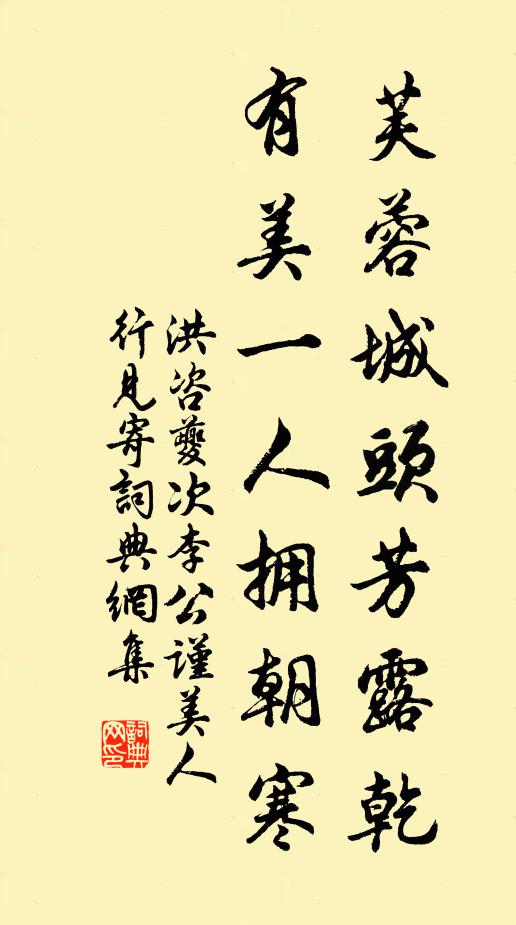 芙蓉城頭芳露乾
有美一人拥朝寒
洪咨夔次李公謹美人
行見寄詞典網集
詞典网印